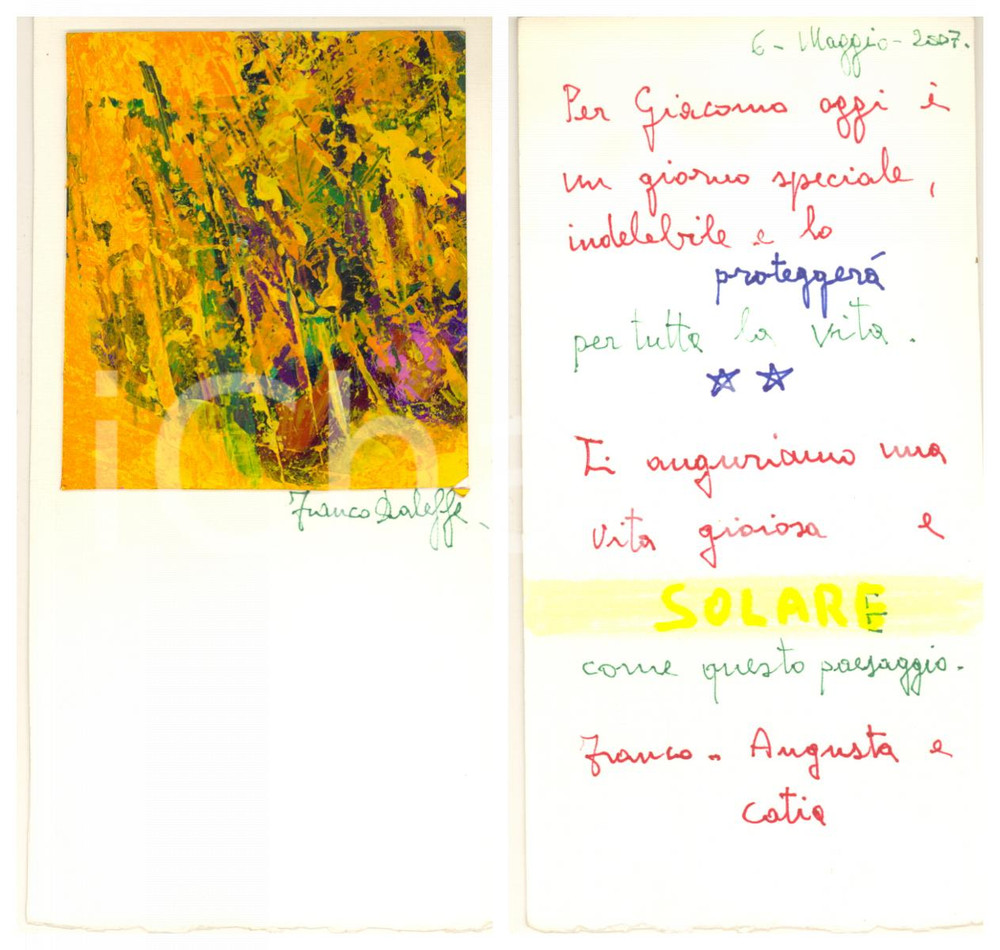 Franco Daleffe
6 - Maggio - 2007.
Per Giacomo oggi è
un giorno speciale,
indelebile e lo
proteggerá
per tutta la vita.
Ti auguriamo una
vita gioiosa e
SOLARE
come questo paesaggio.
Franco .. Augusta e
Catia
iCh